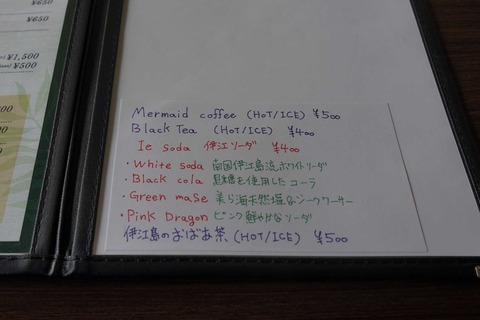 ¥650
¥650
¥1,500
¥500
Mermaid coffee (HOT/ICE) ¥500
Black Tea (HOT/ICE) ¥400
Ie soda 伊江ソーダ ¥400
・White soda 南国伊江島流ホワイトソーダ
・Black cola 黒糖を使用したコーラ
・Green maSe 美ら海天然塩&シークワーサー
・Pink Dragon ピンク鮮やかなソーダ
伊江島のおばあ茶 (HOT/ICE) ¥500